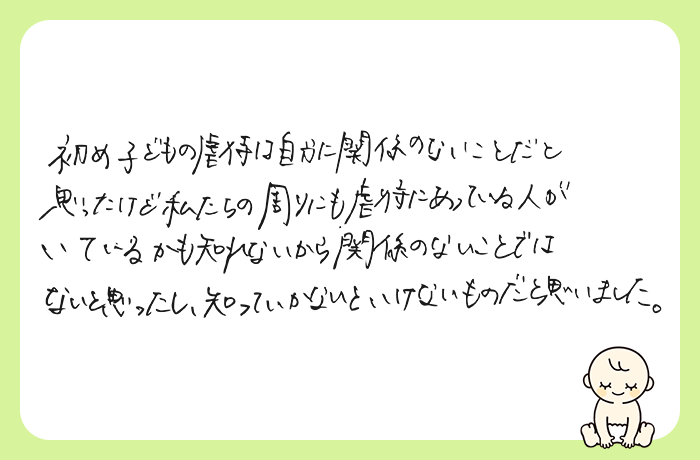 初め子どもの虐待は自分に関係のないことだと
思ったけど私たちの周りにも虐待にあっている人が
いているかも知れないから関係のないことでは
ないと思ったし、知っていかないといけないものだと思いました。